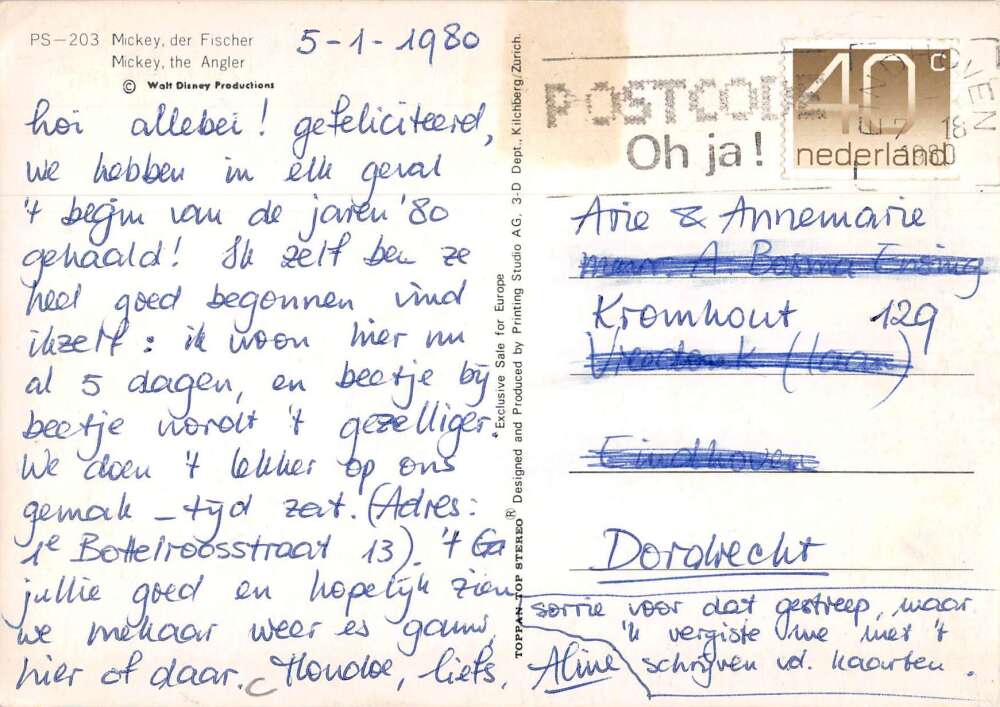 PS—203 Mickey, der Fischer
Mickey, the Angler
© Walt Disney Productions
5-1-1980
hoi allebei! gefeliciteerd,
we hebben in elk geval
't begin van de jaren '80
gehaald! Ik zelf ben ze
heel goed begonnen vind
ikzelf: ik woon hier nu
al 5 dagen, en beetje bij
beetje wordt 't gezelliger.
We doen 't lekker op ons
gemak – tijd zat. (Adres:
1e Bottelroosstraat 13). 't Ga
jullie goed en hopelijk zien
we mekaar weer es gauw,
hier of daar. Houdoe, liefs,
Aline
TOPPAN TOP STEREO® Designed and Produced by Printing Studio AG. 3-D Dept., Kilchberg/Zurich.
Exclusive Sale for Europe
POSTCODE
Oh ja!
40c
nederland
EINDHOVEN
18
1980
Arie & Annemarie
A Bosma Ensing
Kromhout 129
Eindhoven
Dordrecht
sorrie voor dat gestreep, maar
'k vergiste me met 't
schrijven vd. kaarten.